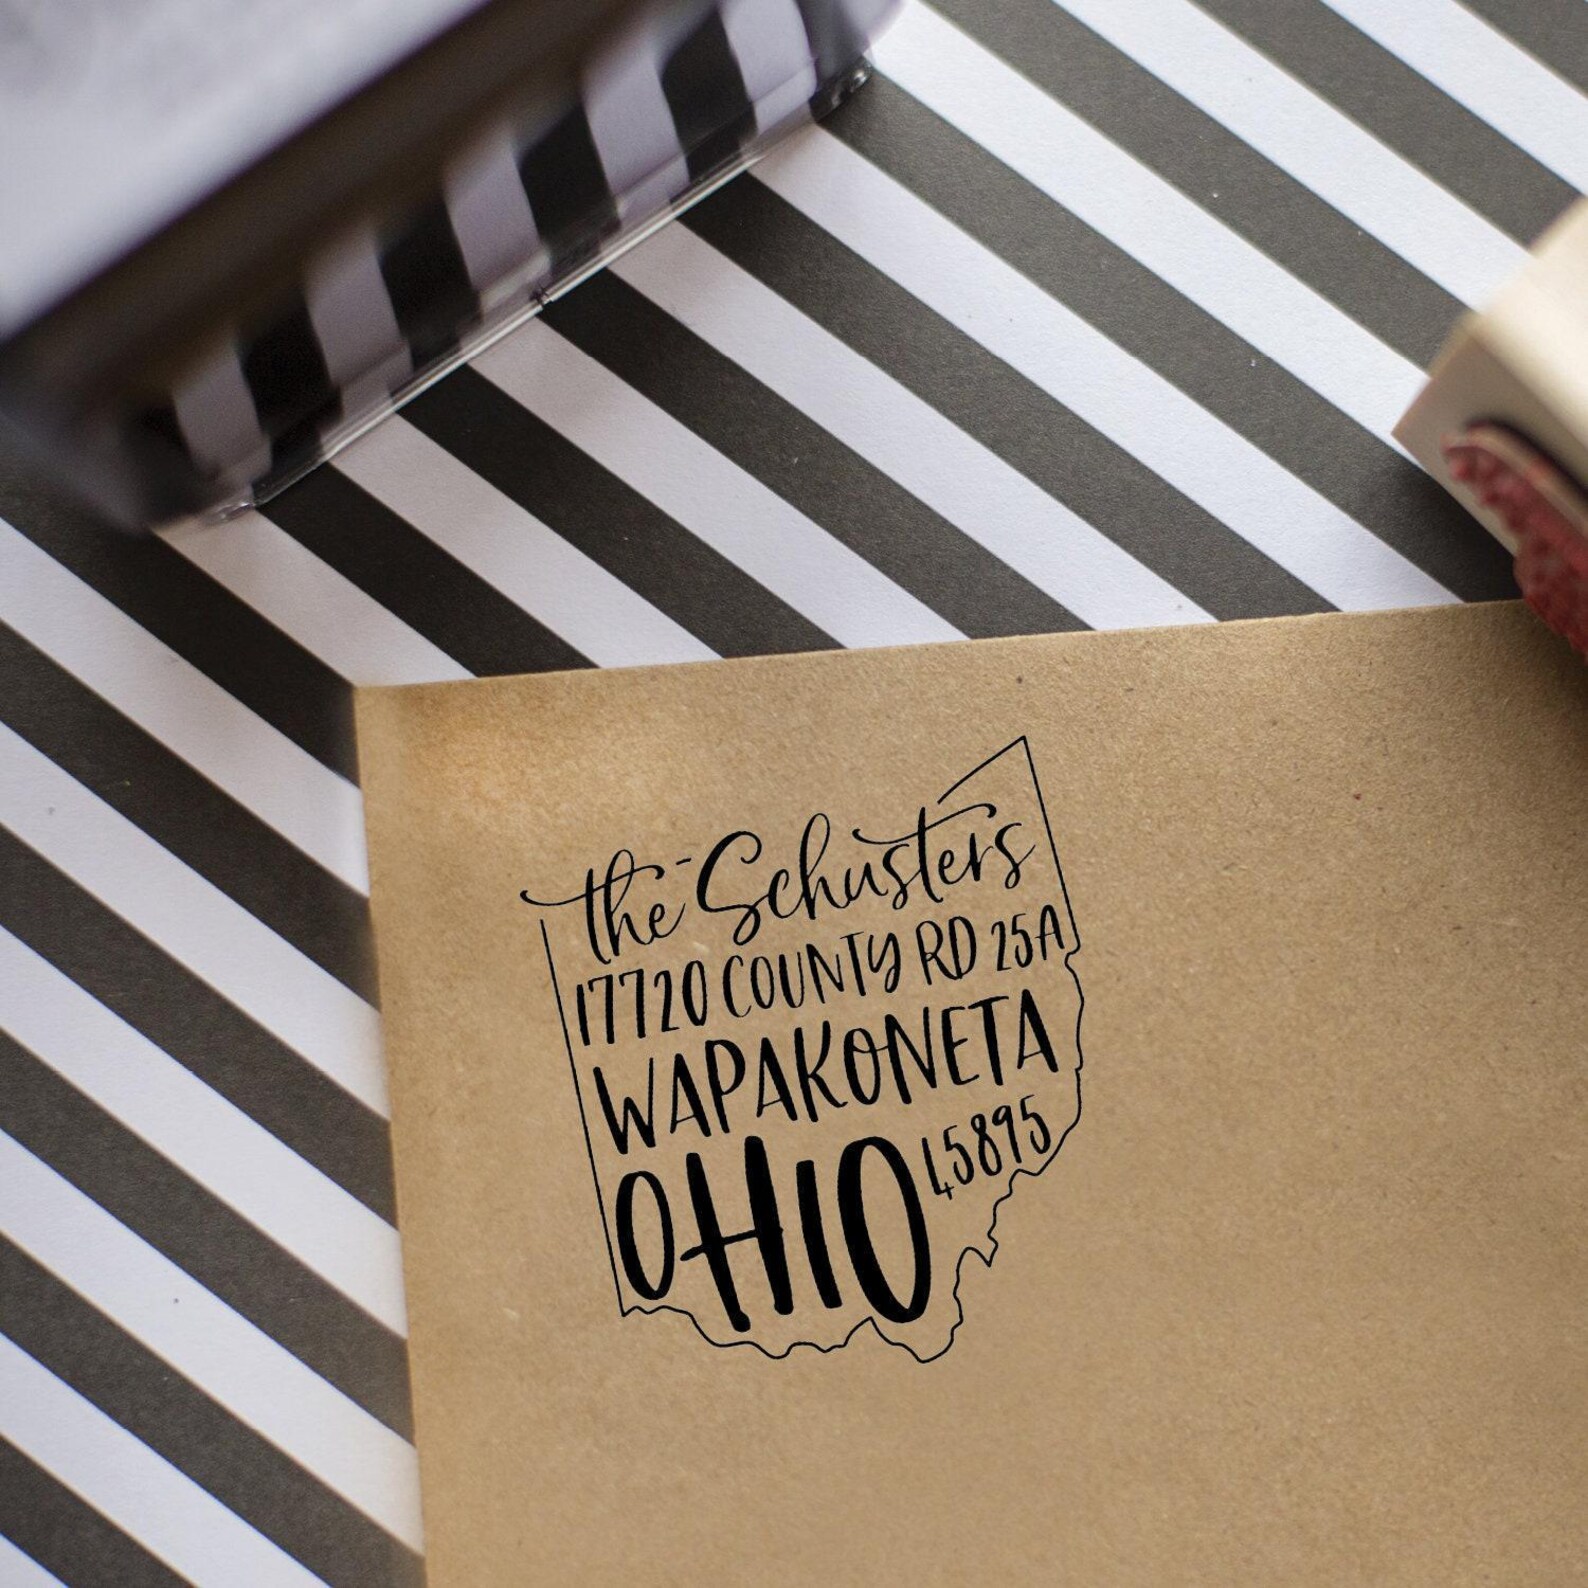 the Schusters
17720 COUNTY RD 25A
WAPAKONETA
OHIO 45895